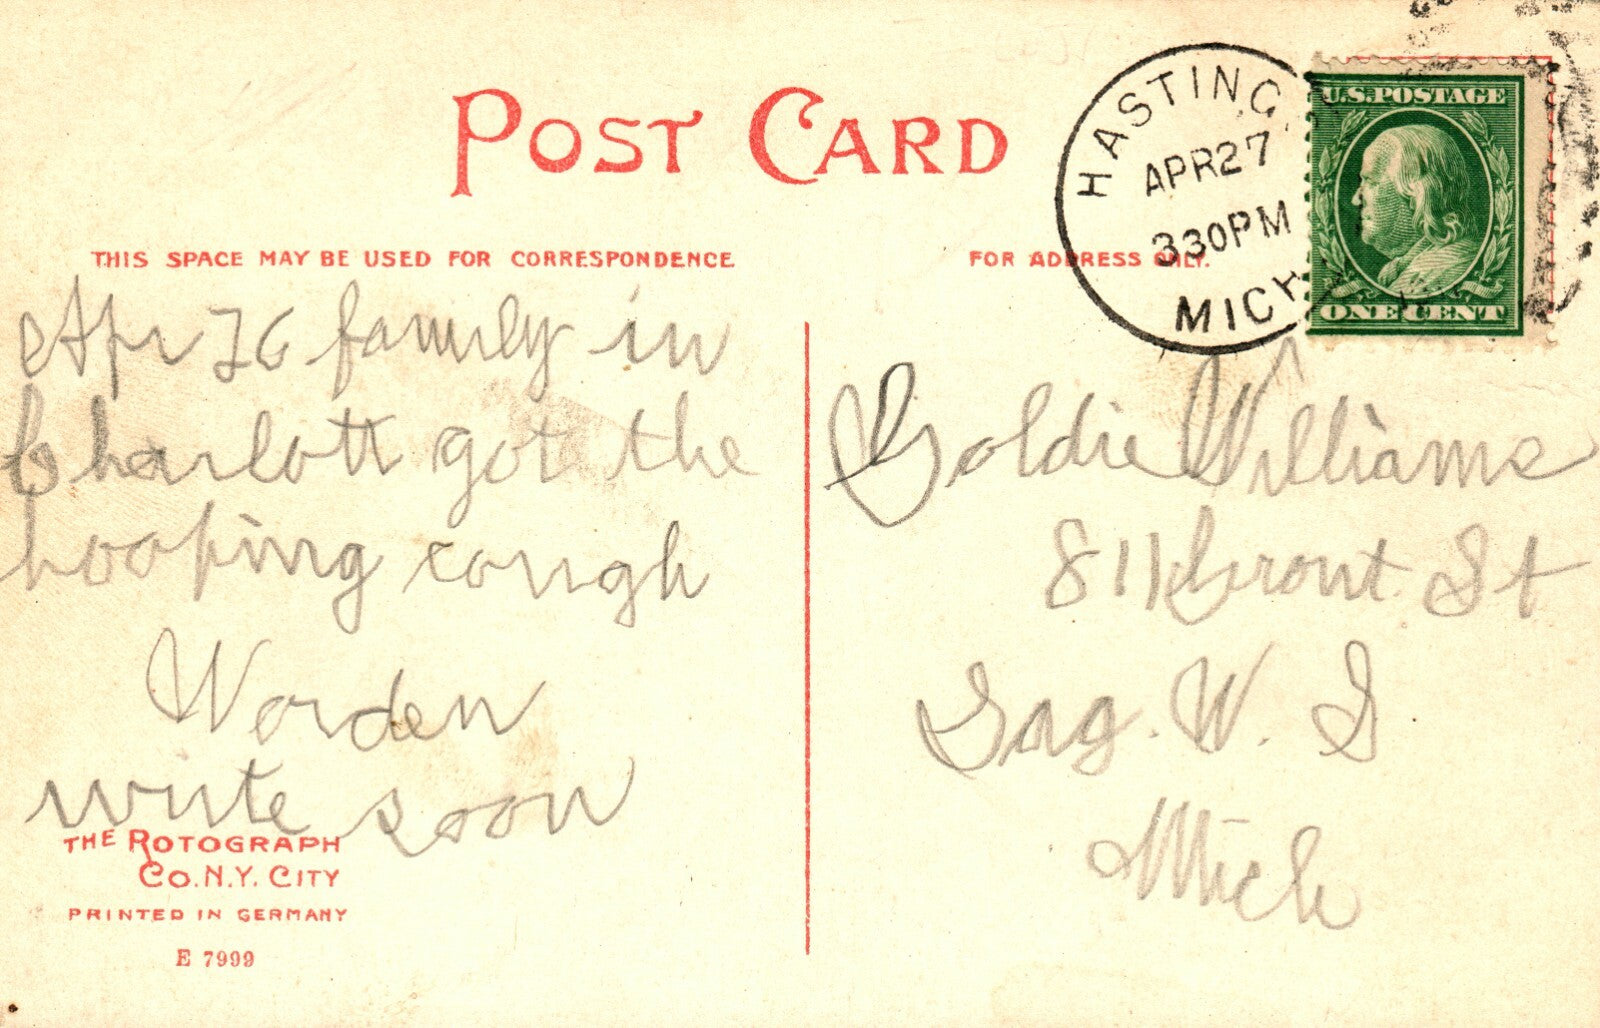 POST CARD
HASTINGS
APR 27
330PM
MICH
U.S. POSTAGE
ONE CENT
THIS SPACE MAY BE USED FOR CORRESPONDENCE
FOR ADDRESS ONLY.
Apr 26 family in
Charlott got the
hooping cough
Worden
write soon
Goldie Williams
811 Grout St
Sag. W. S
Mich
THE ROTOGRAPH
CO. N.Y. CITY
PRINTED IN GERMANY
E 7999